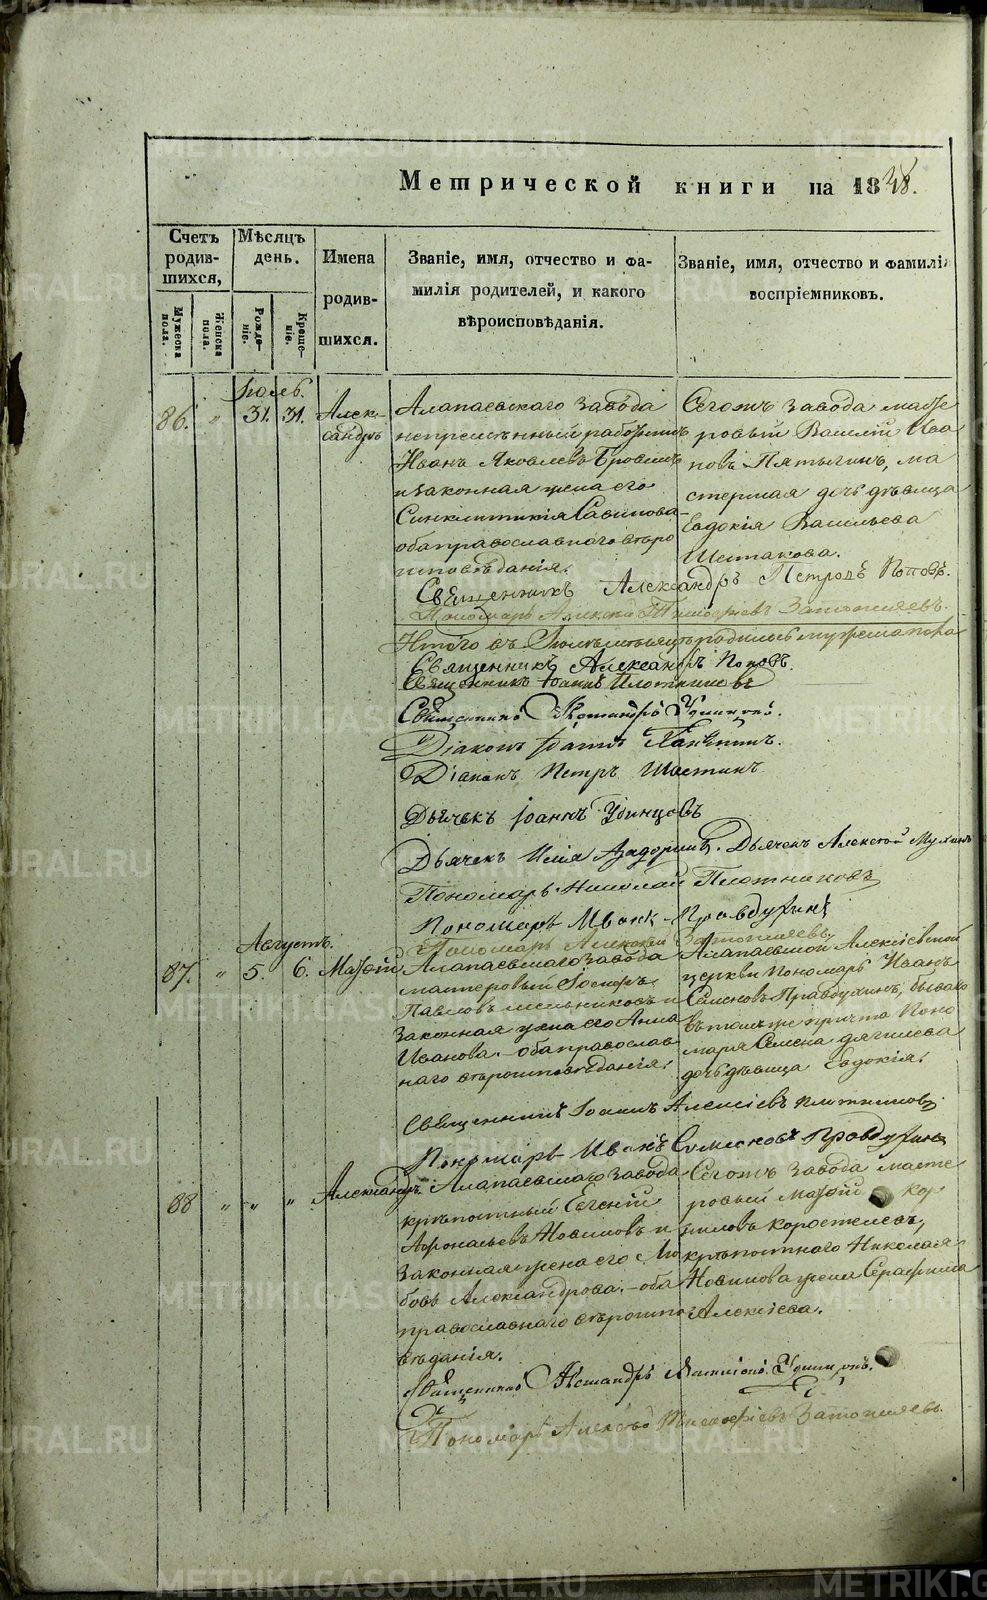 Метрической книги на 1848.
Счетъ родив-шихся,
Мѣсяцъ день.
Имена родив-шихся.
Званіе, имя, отчество и фа-
милія родителей, и какого
вѣроисповѣданія.
Званіе, имя, отчество и фамилія
воспріемниковъ.
Мужеска пола.
Женска пола.
Рожде-ніе.
Креще-ніе.
86. " 31. 31. Алек-
сандръ
Алапаевскаго завода
непремѣнный работникъ
Иванъ Яковлевъ
и законная жена его
Синклитикія Савинова
оба православнаго вѣро
исповѣданія.
Сегожъ завода масте
ровый Василій Ива
новъ Пятыгинъ, ма
стерская дочь дѣвица
Евдокія Васильева
Шестакова.
Священникъ Александръ Петровъ Поповъ.
Пономарь Алексѣй Затопляевъ.
Итого въ мѣсяцѣ родилось мужеска пола
Священникъ Александръ Поповъ.
Священникъ Іоаннъ Плотниковъ
Священникъ
Діаконъ Іоаннъ
Діаконъ Петръ
Дьячекъ Іоаннъ Удинцовъ
Дьячекъ Илія Дьячекъ Алексѣй
Пономарь Николай Плотниковъ
Пономарь Иванъ Правдухинъ
Пономарь Алексѣй Затопляевъ
Августъ.
87. " 5. 6. Матѳій
Алапаевскаго завода
мастеровый Іосифъ
Павловъ Мельниковъ и
законная жена его Анна
Иванова. оба православ
наго вѣроисповѣданія.
Алапаевской Алексіевской
церкви Пономарь Иванъ
Семеновъ Правдухинъ, бываго
въ томъ же причта Поно
маря Семена Дягилева
дочь дѣвица Евдокія.
Священникъ Іоаннъ Алексіевъ Плотниковъ.
Пономарь Иванъ Семеновъ Правдухинъ
88 " " " Александръ
Алапаевскаго завода
крѣпостный Евгеній
Афонасьевъ Новиковъ и
законная жена его Лю
бовь Александрова. оба
православнаго вѣроиспо
вѣданія.
Сегожъ завода масте
ровый Матѳій Кор
ниловъ Коростелевъ,
крѣпостнаго Николая
Новикова жена Серафима
Алексіева.
Священникъ
Пономарь Алексѣй Затопляевъ.
METRIKI.GASO-URAL.RU